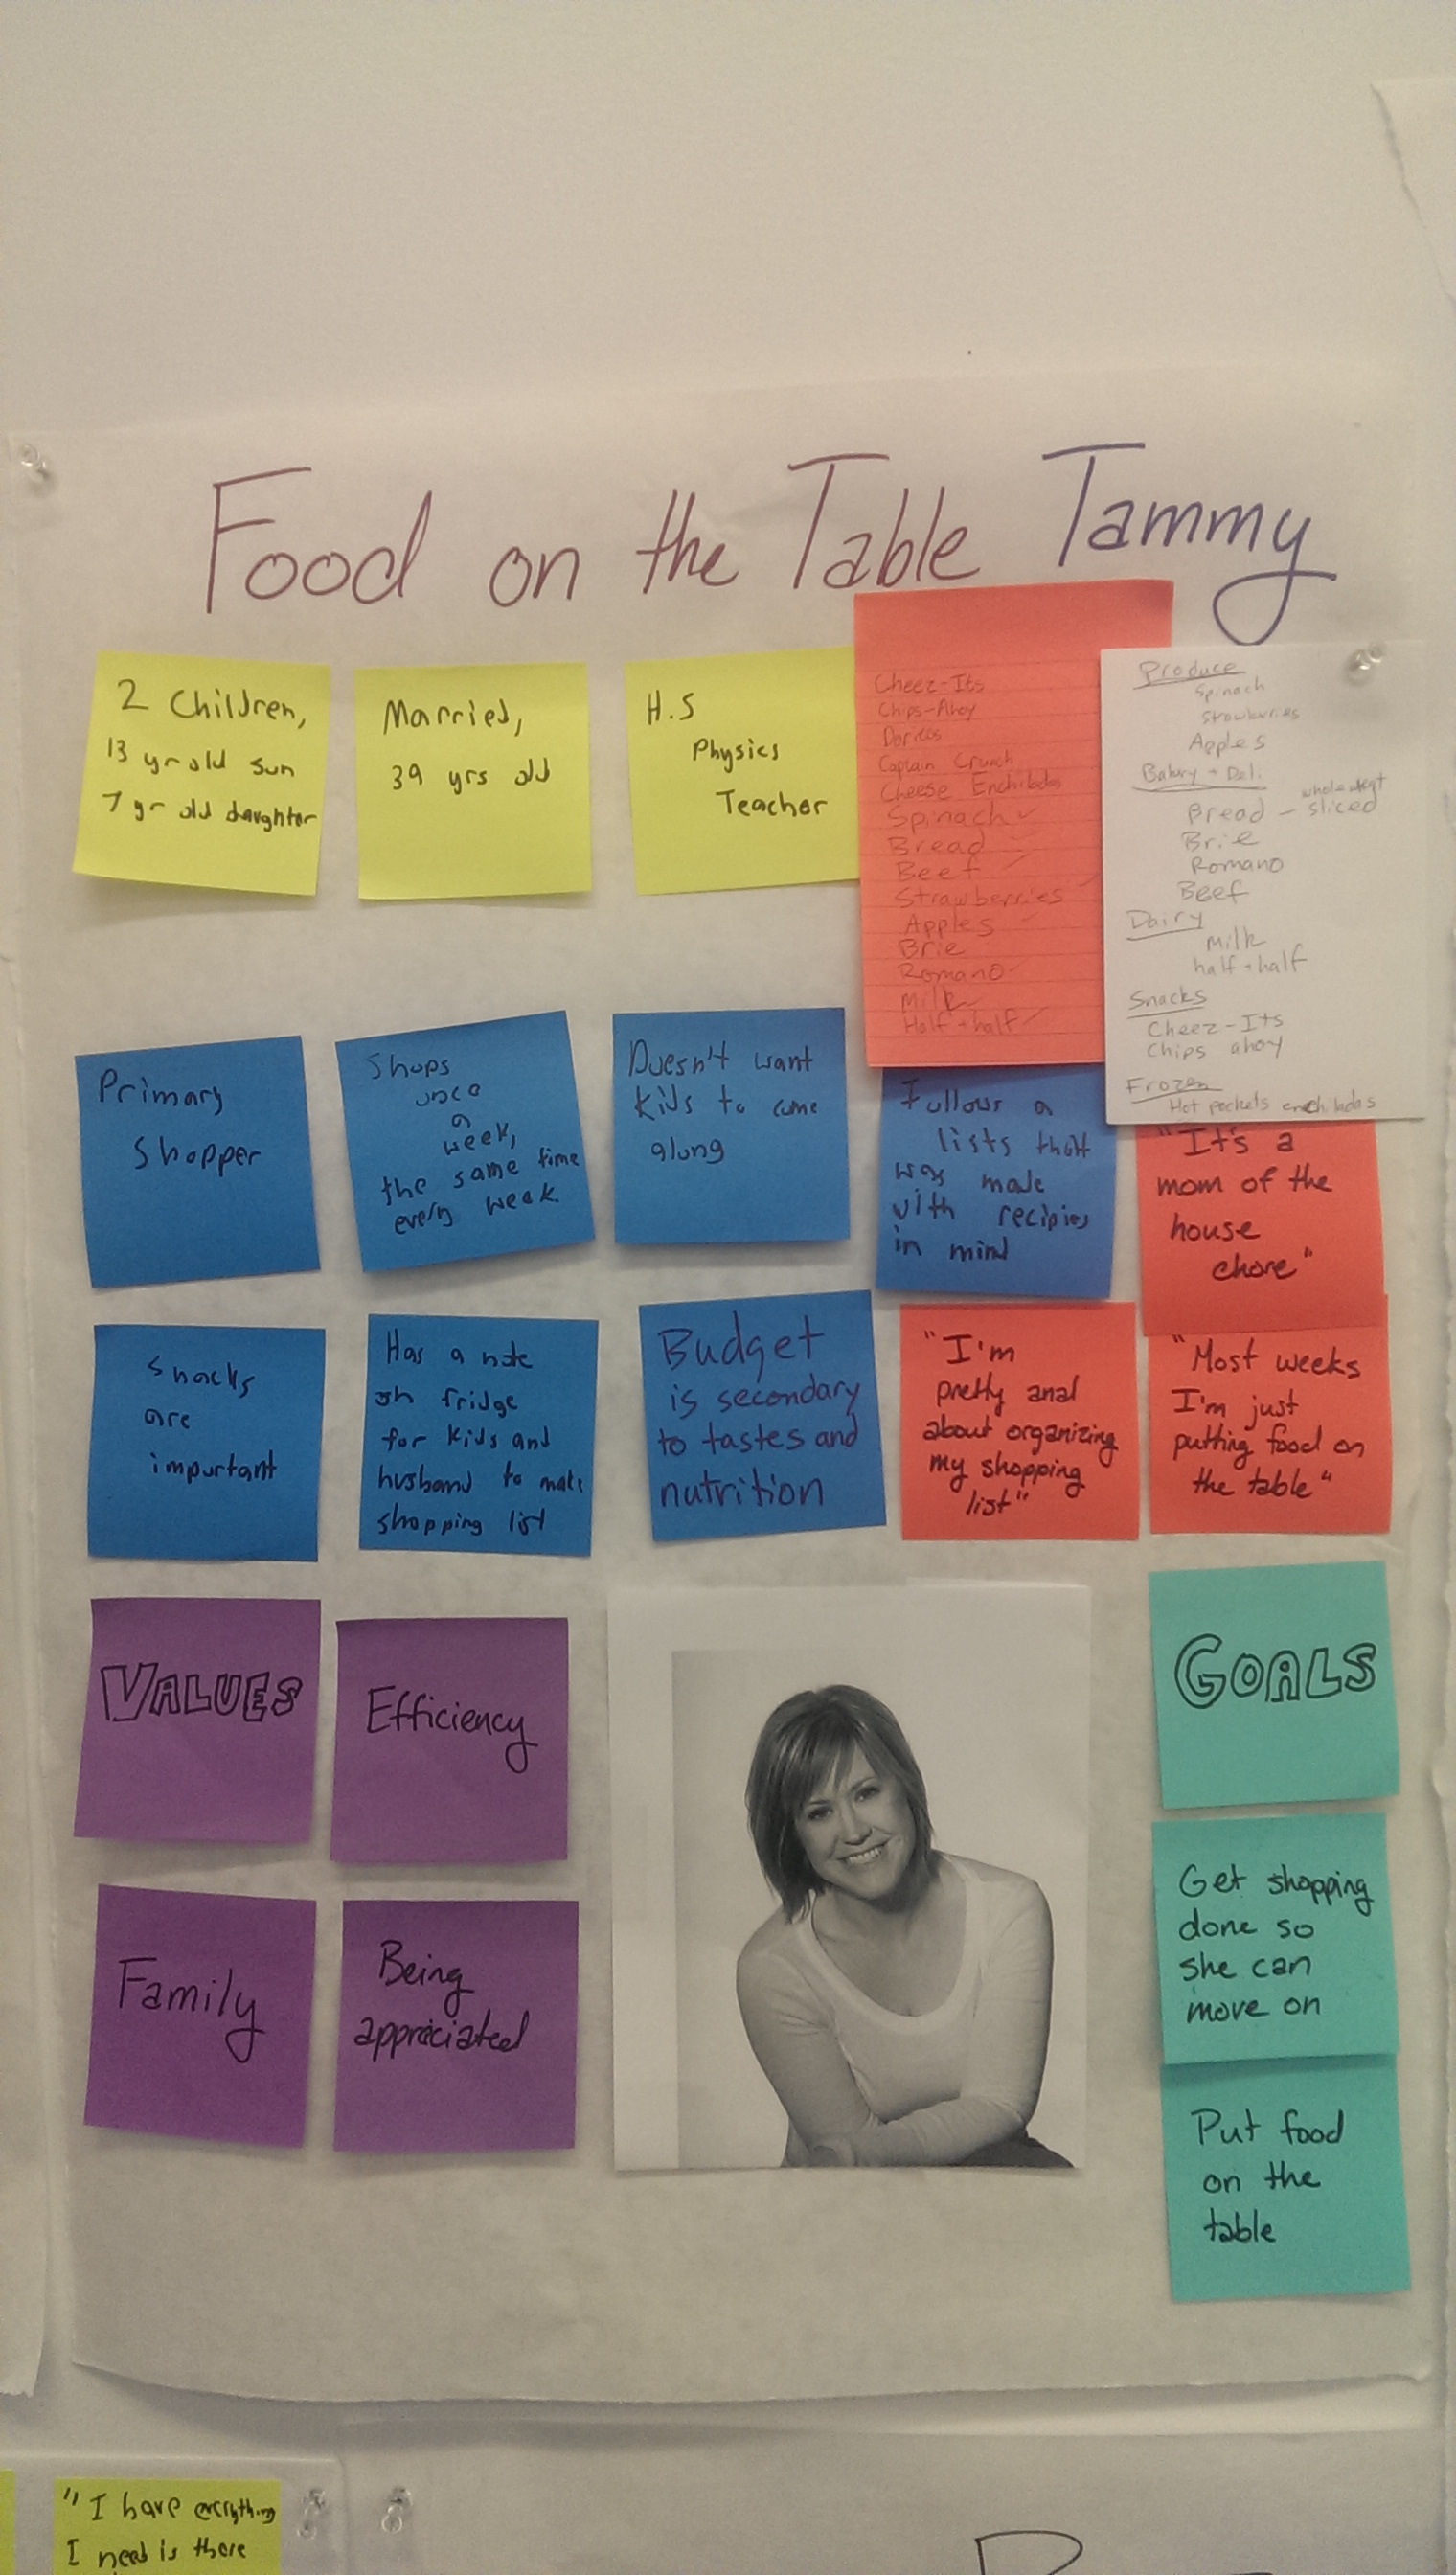 Food on the Table Tammy
2 Children,
13 yr old sun
7 yr old daughter
Married,
39 yrs old
H.S
Physics
Teacher
Cheez-Its
Chips-Ahoy
Doritos
Captain Crunch
Cheese Enchiladas
Spinach ✓
Bread
Beef ✓
Strawberries ✓
Apples
Brie
Romano ✓
Milk ✓
Half + half ✓
Produce
Spinach
Strawberries
Apples
Bakery + Deli
Bread - whole wheat
sliced
Brie
Romano
Beef
Dairy
Milk
half + half
Snacks
Cheez-Its
Chips ahoy
Frozen
Hot pockets enchiladas
Primary
Shopper
Shops
once
a
week,
the same time
every week.
Doesn't want
kids to come
along
Follows a
lists that
was made
with recipies
in mind
"It's a
mom of the
house
chore"
Snacks
are
important
Has a note
on fridge
for kids and
husband to make
shopping list
Budget
is secondary
to tastes and
nutrition
"I'm
pretty anal
about organizing
my shopping
list"
"Most weeks
I'm just
putting food on
the table"
VALUES
Efficiency
Family
Being
appreciated
GOALS
Get shopping
done so
she can
move on
Put food
on the
table
"I have everything
I need is there